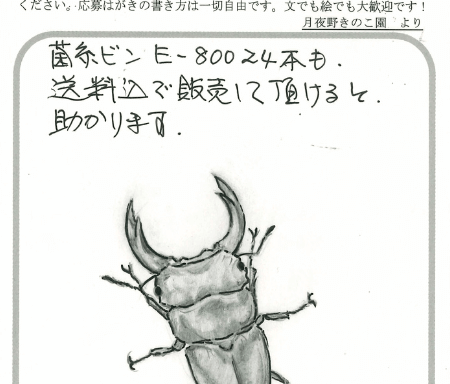 ください。応募はがきの書き方は一切自由です。文でも絵でも大歓迎です！
月夜野きのこ園　より
菌糸ビン E-800 24本も.
送料込で販売して頂けると.
助かります.